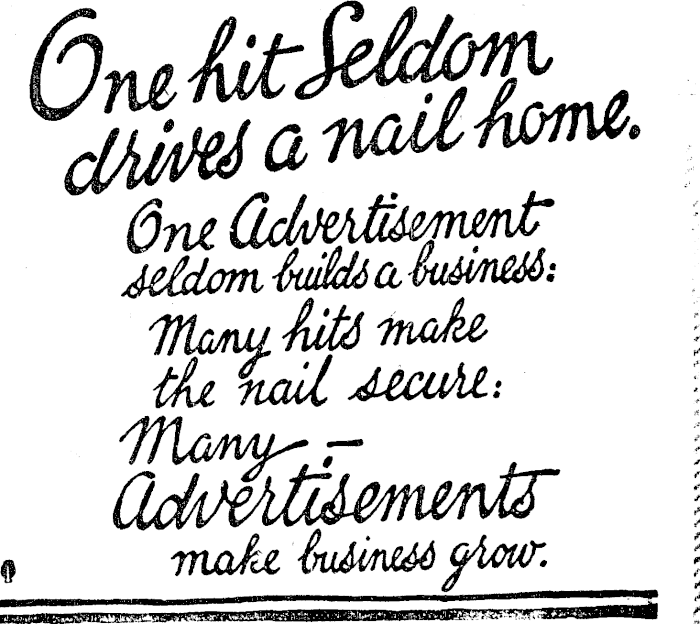 One hit Seldom
drives a nail home.
One Advertisement
seldom builds a business:
Many hits make
the nail secure:
Many -
Advertisements
make business grow.